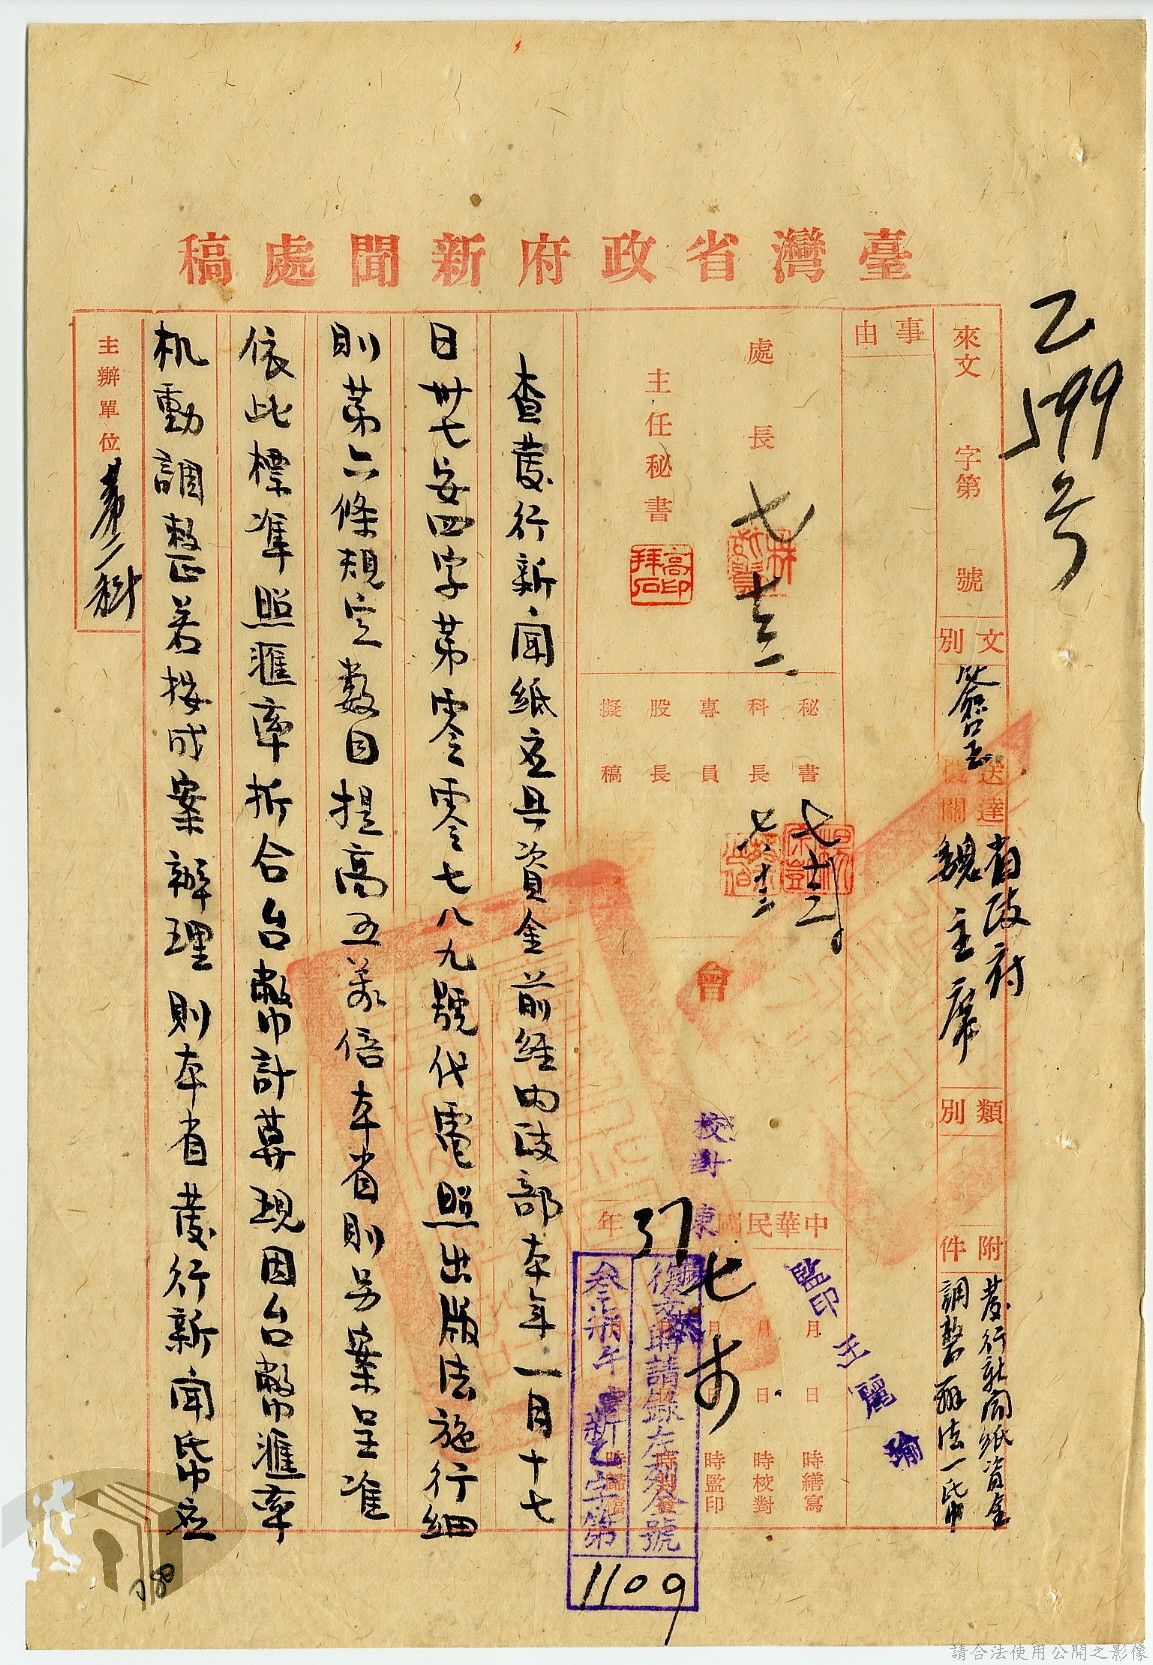 臺灣省政府新聞處稿
乙599号
來文 字第 號
文別 簽呈
送達機關 省政府
魏主席
類別
附件 發行新聞紙資金
調整辦法一帋
事由
處長 七 十三
主任秘書 高拜石印
秘書 七 十二
科長 七 十三
專員
股長
擬稿
會
校對
監印 王麗瑜
中華民國37年七
月 日 時繕寫
月 日 時校對
月 日 時監印
復文時請錄左列發號
叁柒午 新乙字第
1109
查發行新聞紙应具資金前經內政部本年一月十七
日卅七安四字第零零七八九號代電照出版法施行細
則第六條規定數目提高五萬倍本省則另案呈准
依此標準照滙率折合台幣計算現因台幣滙率
机動調整若按成案辦理則本省發行新聞帋应
主辦單位 第二科
請合法使用公開之影像